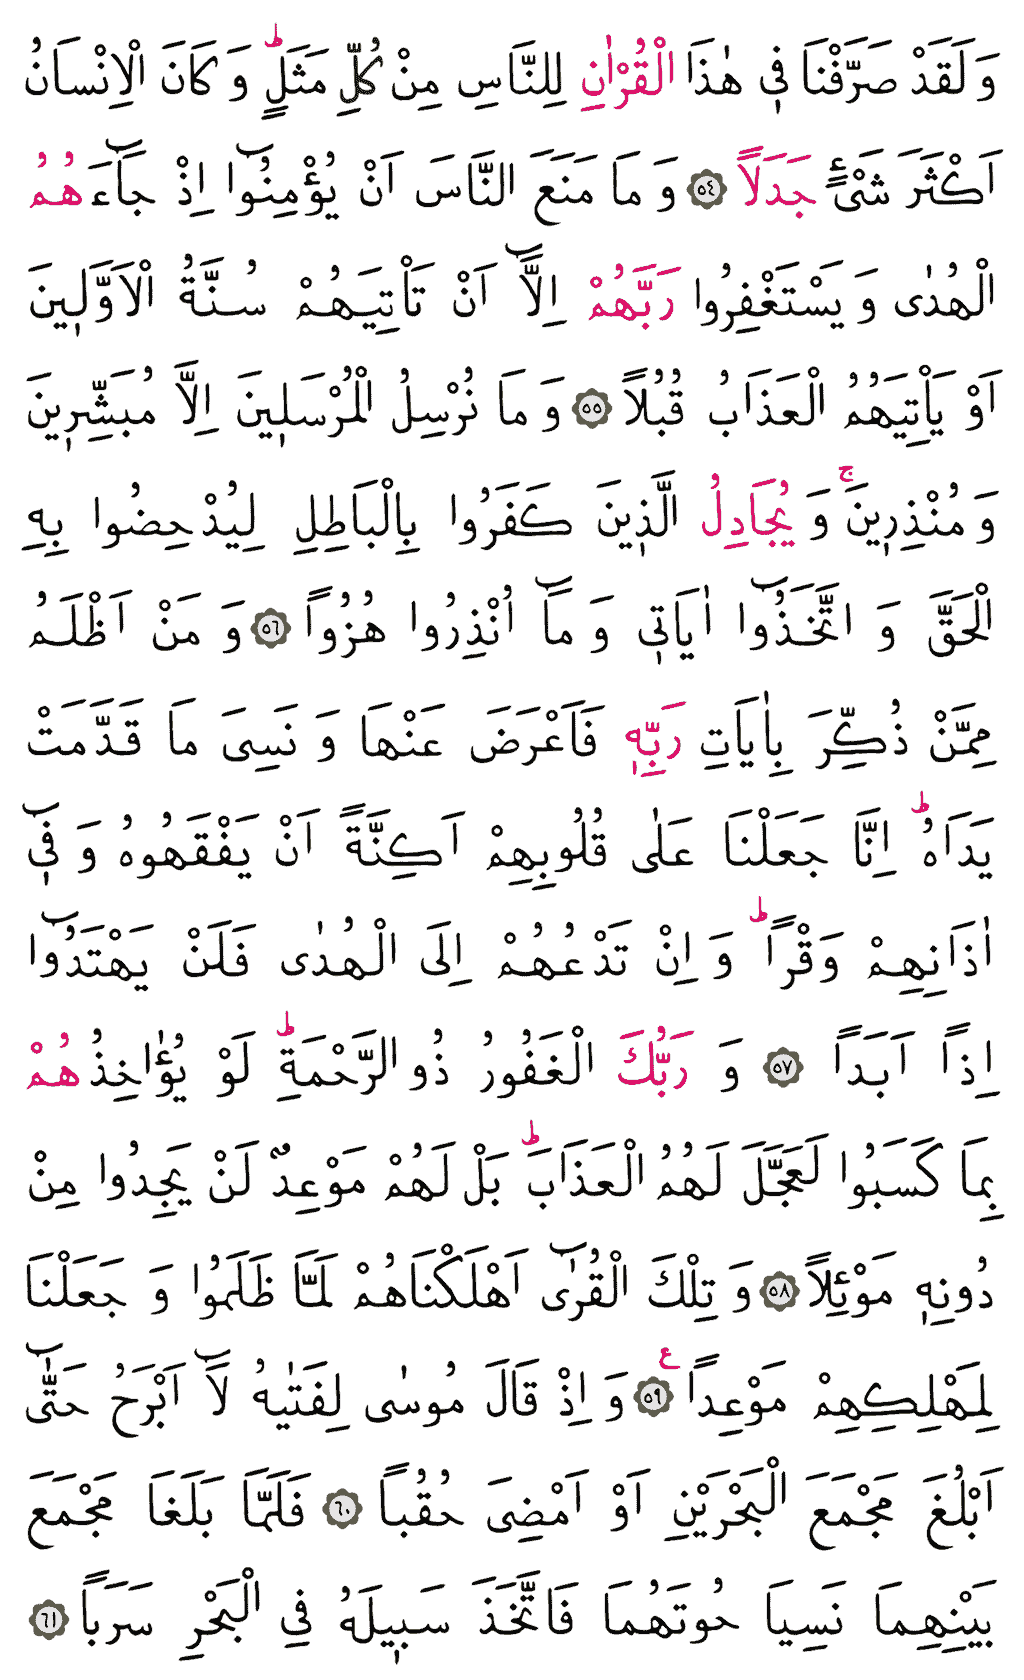 وَ لَقَدْ صَرَّفْنَا ف۪ي هٰذَا الْقُرْاٰنِ لِلنَّاسِ مِنْ كُلِّ مَثَلٍۜ وَ كَانَ الْاِنْسَانُ
اَكْثَرَ شَيْءٍ جَدَلاً ﴿٥٤﴾ وَ مَا مَنَعَ النَّاسَ اَنْ يُؤْمِنُٓوا اِذْ جَٓاءَهُمُ
الْهُدٰى وَ يَسْتَغْفِرُوا رَبَّهُمْ اِلَّٓا اَنْ تَأْتِيَهُمْ سُنَّةُ الْاَوَّل۪ينَ
اَوْ يَأْتِيَهُمُ الْعَذَابُ قُبُلاً ﴿٥٥﴾ وَ مَا نُرْسِلُ الْمُرْسَل۪ينَ اِلَّا مُبَشِّر۪ينَ
وَ مُنْذِر۪ينَۚ وَ يُجَادِلُ الَّذ۪ينَ كَفَرُوا بِالْبَاطِلِ لِيُدْحِضُوا بِهِ
الْحَقَّ وَ اتَّخَذُٓوا اٰيَات۪ي وَ مَٓا اُنْذِرُوا هُزُواً ﴿٥٦﴾ وَ مَنْ اَظْلَمُ
مِمَّنْ ذُكِّرَ بِاٰيَاتِ رَبِّه۪ فَاَعْرَضَ عَنْهَا وَ نَسِىَ مَا قَدَّمَتْ
يَدَاهُۜ اِنَّا جَعَلْنَا عَلٰى قُلُوبِهِمْ اَكِنَّةً اَنْ يَفْقَهُوهُ وَ ف۪ٓي
اٰذَانِهِمْ وَقْراًۜ وَ اِنْ تَدْعُهُمْ اِلَى الْهُدٰى فَلَنْ يَهْتَدُٓوا
اِذاً اَبَداً ﴿٥٧﴾ وَ رَبُّكَ الْغَفُورُ ذُو الرَّحْمَةِۜ لَوْ يُؤٰاخِذُهُمْ
بِمَا كَسَبُوا لَعَجَّلَ لَهُمُ الْعَذَابَۜ بَلْ لَهُمْ مَوْعِدٌ لَنْ يَجِدُوا مِنْ
دُونِه۪ مَوْئِلاً ﴿٥٨﴾ وَ تِلْكَ الْقُرٰٓى اَهْلَكْنَاهُمْ لَمَّا ظَلَمُوا وَ جَعَلْنَا
لِمَهْلِكِهِمْ مَوْعِداً ﴿٥٩﴾ ع وَ اِذْ قَالَ مُوسٰى لِفَتٰيهُ لَٓا اَبْرَحُ حَتّٰٓى
اَبْلُغَ مَجْمَعَ الْبَحْرَيْنِ اَوْ اَمْضِىَ حُقُباً ﴿٦٠﴾ فَلَمَّا بَلَغَا مَجْمَعَ
بَيْنِهِمَا نَسِيَا حُوتَهُمَا فَاتَّخَذَ سَب۪يلَهُ فِي الْبَحْرِ سَرَباً ﴿٦١﴾